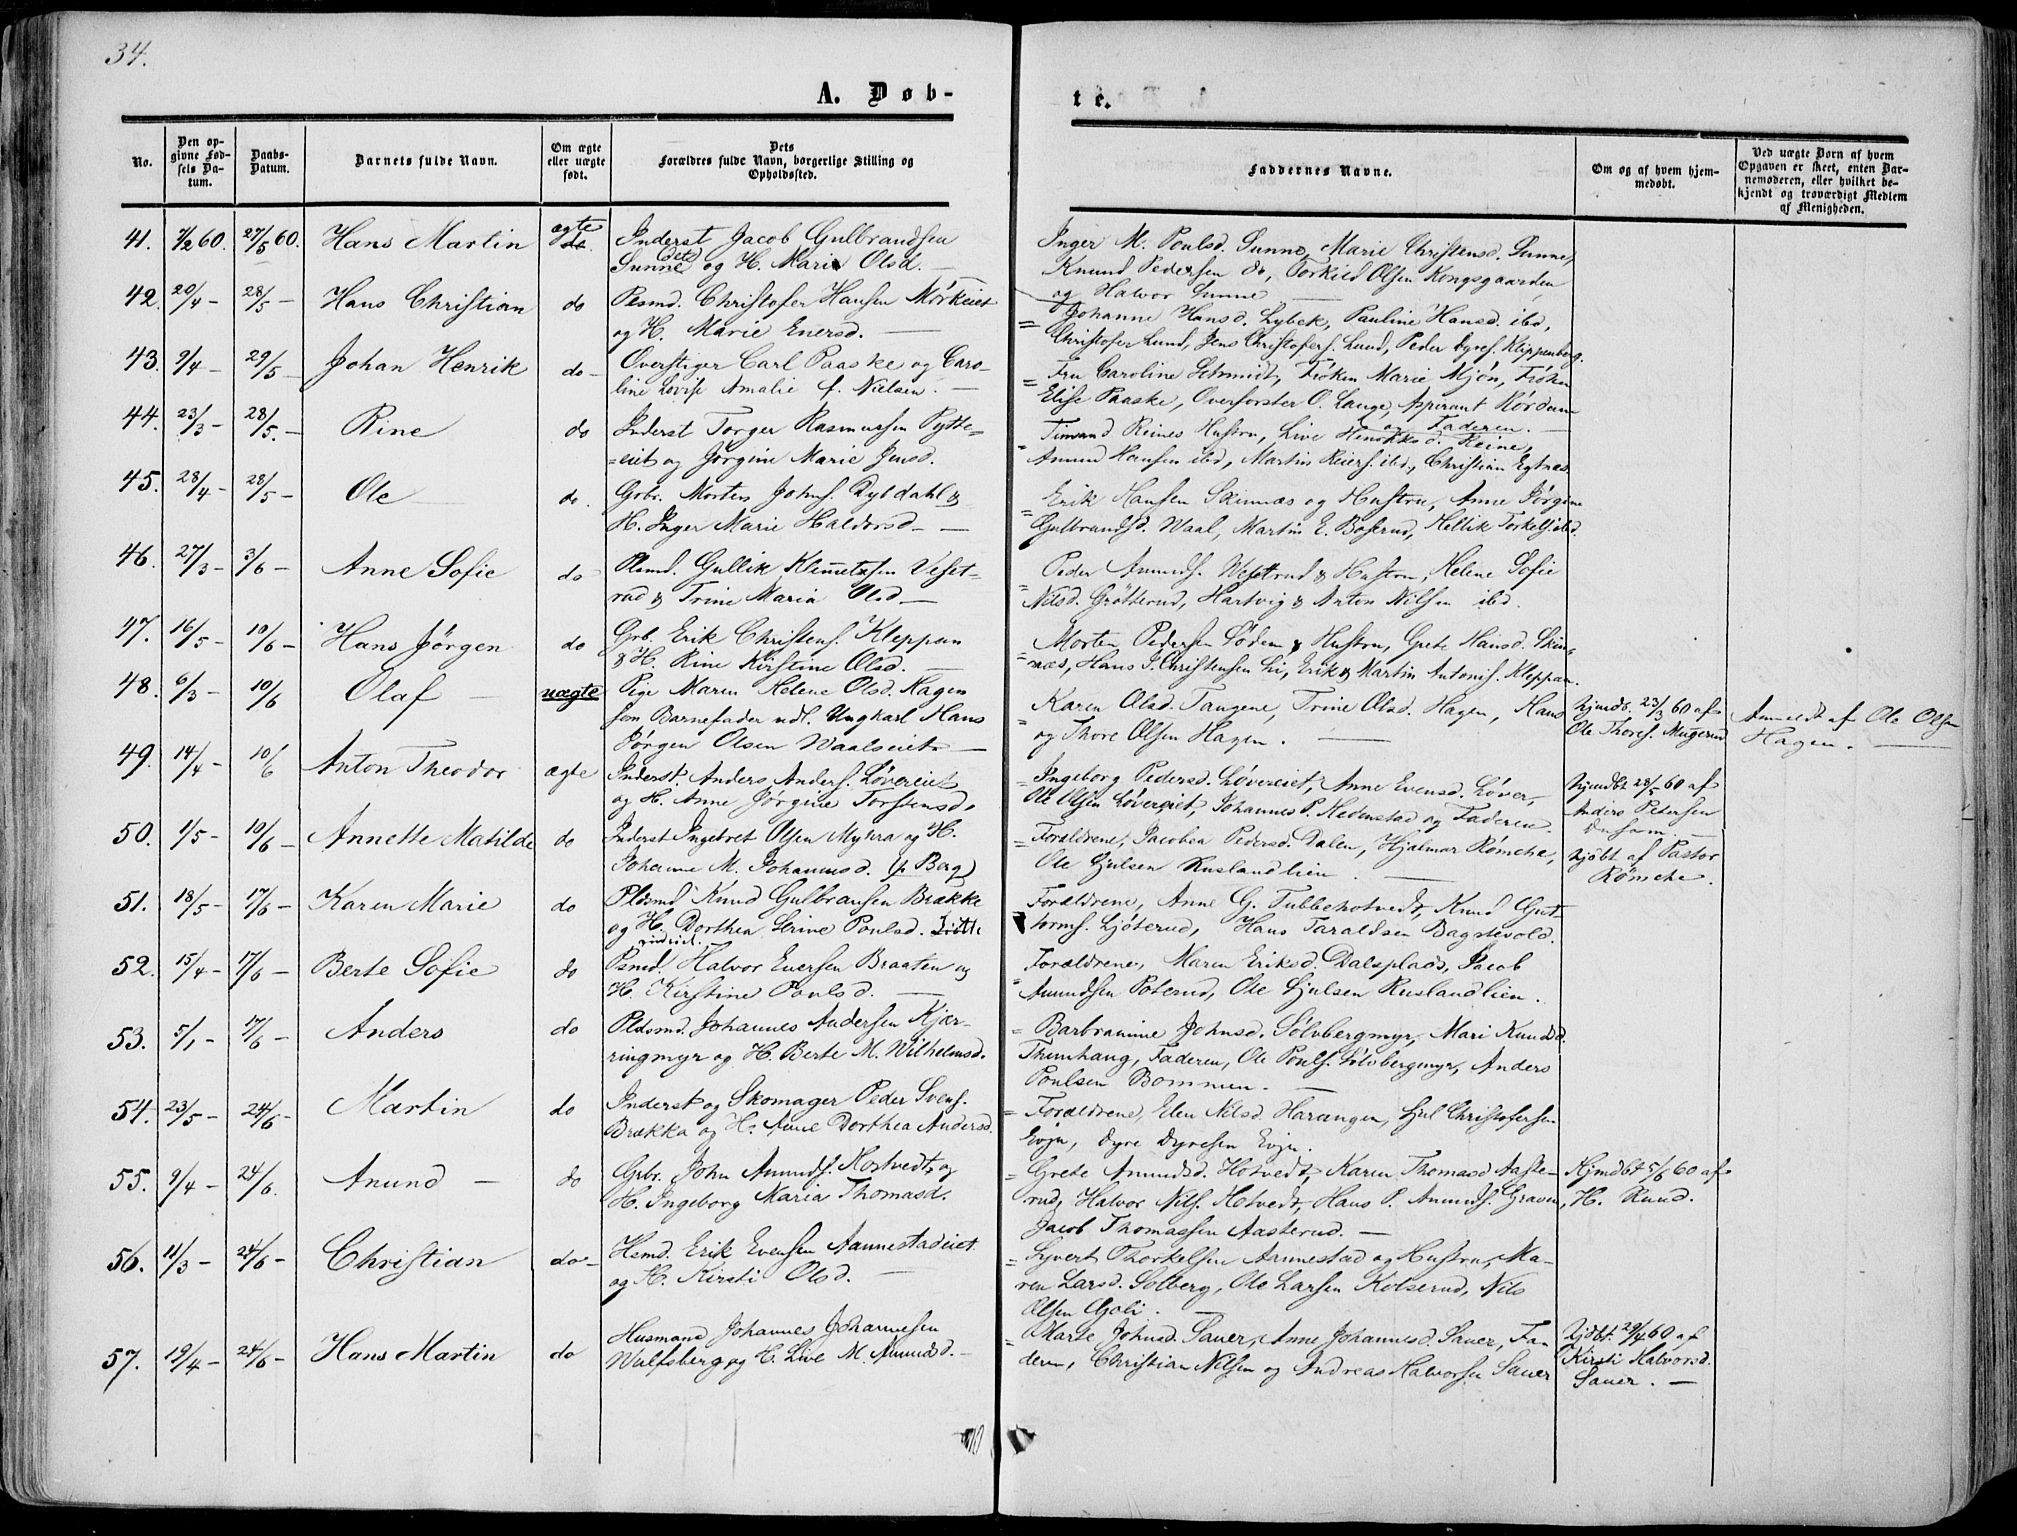 34.
A. Døb-
te.
No.
Den op-
givne Fød-
sels Da-
tum.
Daabs-
Datum.
Barnets fulde Navn.
Om ægte
eller uægte
født.
Dets
Forældres fulde Navn, borgerlige Stilling og
Opholdssted.
Faddernes Navne.
Om og af hvem hjem-
medøbt.
Ved uægte Børn af hvem
Opgaven er skeet, enten Bar-
nemoderen, eller hvilket be-
kjendt og troværdigt Medlem
af Menigheden.
41. 7/2 60. 27/5 60. Hans Martin ægte Inderst Jacob Gulbrandsen
Sunne og H. Marie Olsd.
Inger M. Poulsd. Sunne, Marie Christensd. Sunne,
Knund Pedersen do, Torkild Olsen Kongsgaarden
og Halvor Sunne
42. 20/4 - 28/5 - Hans Christian do Pesmd. Christofer Hansen Mörkeiet
og H. Marie Enersd.
Johanne Hansd. Lybek, Pauline Hansd. ibd,
Christofer Lund, Jens Christofers. Lund, Peder Dyres. Klippenberg.
43. 9/4 - 29/5 - Johan Henrik do - Overstiger Carl Paaske og Caro-
line Lovise Amalie f. Nielsen.
= Fru Caroline Schmidt, Fröken Marie Mjön, Fröken
Elise Paaske, Overforster O. Lange, Aspirant Rördam
og Faderen.
44. 23/3 - 28/5. - Rine do Inderst Torger Rasmussen Pytte=
=eiet og Jörgine Marie Jensd.
Reines Hustru, Live Henriksd. Reine,
Amund Hansen ibd, Martin Reiers. ibd, Christian Egtnes
45. 28/4 - 28/5 - Ole do. Grbr. Morten Johns. Dybdahl &
H. Inger Marie Haldorsd.
Erik Hansen Skinnæs og Hustru, Anne Jörgine
Gulbrandsd. Waal, Martin E. Boserud, Hellik Torkels. ibd.
46. 27/3 - 3/6 - Anne Sofie do Plsmd. Gullik Klemetsen Veset-
rud & Trine Maria Olsd
Peder Amunds. Wesetrud & Hustru, Helene Sofie
Nilsd. Gröttterud, Hartvig & Anton Nilsen ibd.
47. 16/5 - 10/6 - Hans Jörgen do Grb. Erik Christens. Kleppan
& H. Rine Kirstine Olsd.
Morten Pedersen Söden & Hustru, Grete Hansd. Skin-
næs, Hans J. Christensen Li, Erik & Martin Antonis. Kleppan.
48. 6/3 - 10/6 Olaf uægte Pige Maren Helene Olsd. Hagen
som Barnefader udl. Ungkarl Hans
Jörgen Olsen Waalseiet
Karen Olsd. Tangene, Trine Olsd. Hagen, Hans
og Thore Olsen Hagen.
Hjmdb. 23/3 60 af
Ole Thores. Mugerud
Anmeldt af Ole Olsen
Hagen.
49. 14/4 - 10/6 Anton Theodor ægte Inderst. Anders Anders. Lövereiet
og H. Anne Jörgine Torstensd.
Ingeborg Pedersd. Lövereiet, Anne Evensd. Löver,
Ole Olsen Lövereiet, Johannes P. Hedenstad og Faderen.
Hjmdbt 28/5 60 af
Anders Petersen
50. 1/5 - 10/6 - Annette Matilde do Inderst Ingebret Olsen Myhra og H.
Johanne M. Johannesd. (f. Berg)
Forældrene, Jacobea Pedersd. Dalen, Hjalmar Römcke,
Ole Gjulsen Ruslandlien
Hjdbt af Pastor
Römcke.
51. 18/5 - 17/6 - Karen Marie do Pldsmd Knud Gulbransen Brække
og H. Dorthea Serine Poulsd.
Forældrene, Anne G. Tubbehotvedt, Knud Gut-
torms. Ljöterud, Hans Taraldsen Bagstevold.
52. 15/4 - 17/6 - Berte Sofie do Psmd. Halvor Eversen Braaten og
H. Kirstine Poulsd.
Forældrene, Maren Eriksd. Dalsplads, Jacob
Amundsen Poterud, Ole Gjulsen Ruslandlien.
53. 5/1 - 17/6 - Anders do Pldsmd. Johannes Andersen Kjær-
ringmyr og H. Berte M. Wilhelmsd.
Barbramine Johnsd. Sölvbergmyr, Mari Knudsd.
Thumhaug, Faderen, Ole Pouls. Sölvbergmyr, Anders
Poulsen Bommen.
54. 23/5 - 24/6 - Martin do Inderst og Skomager Peder Svens.
Brække og H. Anne Dorthea Andersd.
= Forældrene, Elen Nilsd. Harangen, Gjul Christofersen
Evju, Dyre Dyresen Evju.
55. 9/4 - 24/6. Anund - do Grbr. John Amunds. Hostvedt og
H. Ingeborg Maria Thomasd.
- Grete Amundsd. Hotvedt, Karen Thomasd Aaste-
rud, Halvor Nils. Hotvedt, Hans P. Amunds. Graven,
Jacob Thomassen Aasterud.
Hjmdbt 5/6 60 af
H. Ruud.
56. 11/3 - 24/6 - Christian do - Hsmd. Erik Evensen Aannestadeiet
og H. Kirsti Olsd.
= Syvert Thorkelsen Aannestad og Hustru, Ma-
ren Larsd. Solberg, Ole Larsen Kolserud, Nils
Olsen Goli.
57. 19/4 - 24/6 - Hans Martin do Husmand Johannes Johannesen
Wulfsberg og H. Live M. Amundsd.
= Marte Johnsd. Sauer, Anne Johannesd. Sauer, Fa-
deren, Christian Nilsen og Andreas Halvorsen Sauer
Hjdbt. 29/4 60 af
Kirsti Halvorsd.
Sauer.